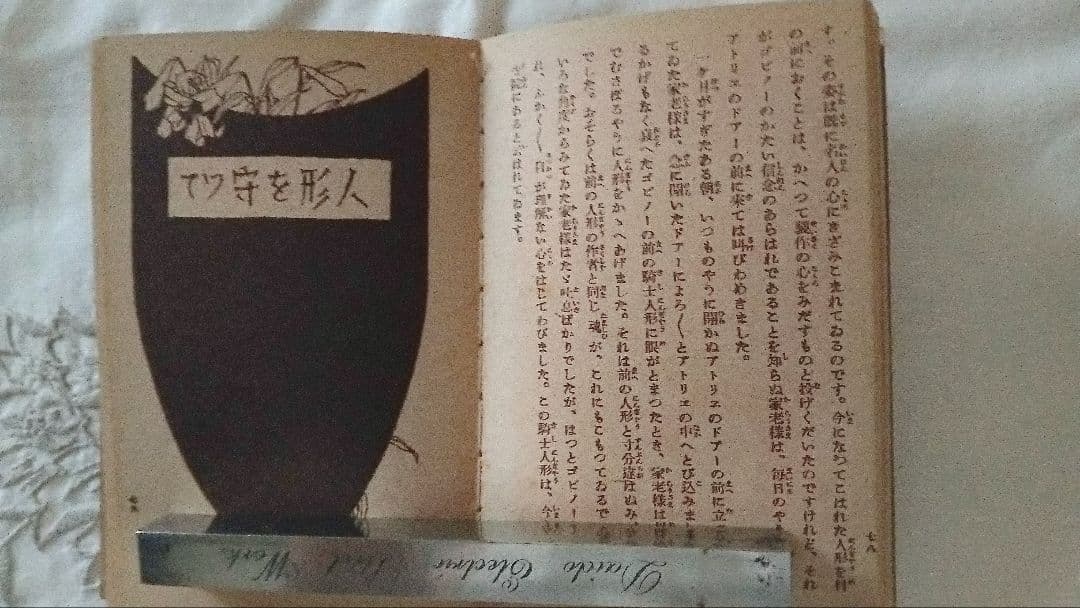 す。その姿は既に老人の心にきざみこまれてゐるのです。今になつてこはれた人形を科
の前におくことは、かへつて製作の心をみだすものと投げくだいたのですけれど、それ
がゴビノーのかたい信念のあらはれであることを知らぬ家老様は、毎日のや
アトリエのドアーの前に来ては叫びわめきました。
一ヶ月がすぎたある朝、いつものやうに開かぬアトリエのドアーの前に立
てゐた家老様は、急に開いたドアーによろ〳〵とアトリエの中へとび込みま
るかげもなく衰へたゴビノーの前の騎士人形に眼がとまつたとき、家老様は
でむさぼるやうに人形をかゝへあげました。それは前の人形と寸分違はぬみ
でした。おそらくは前の人形の作者と同じ魂が、これにもこもつてゐるで
いろな角度からみてゐた家老様はたゞ吐息ばかりでしたが、はつとゴビノー
れ、ふかく〳〵自が理解ない心をはじてわびました。この騎士人形は、今
院にあるといはれてゐます。
七八
人形を守ツて
七九
Daido Electric Steel Works